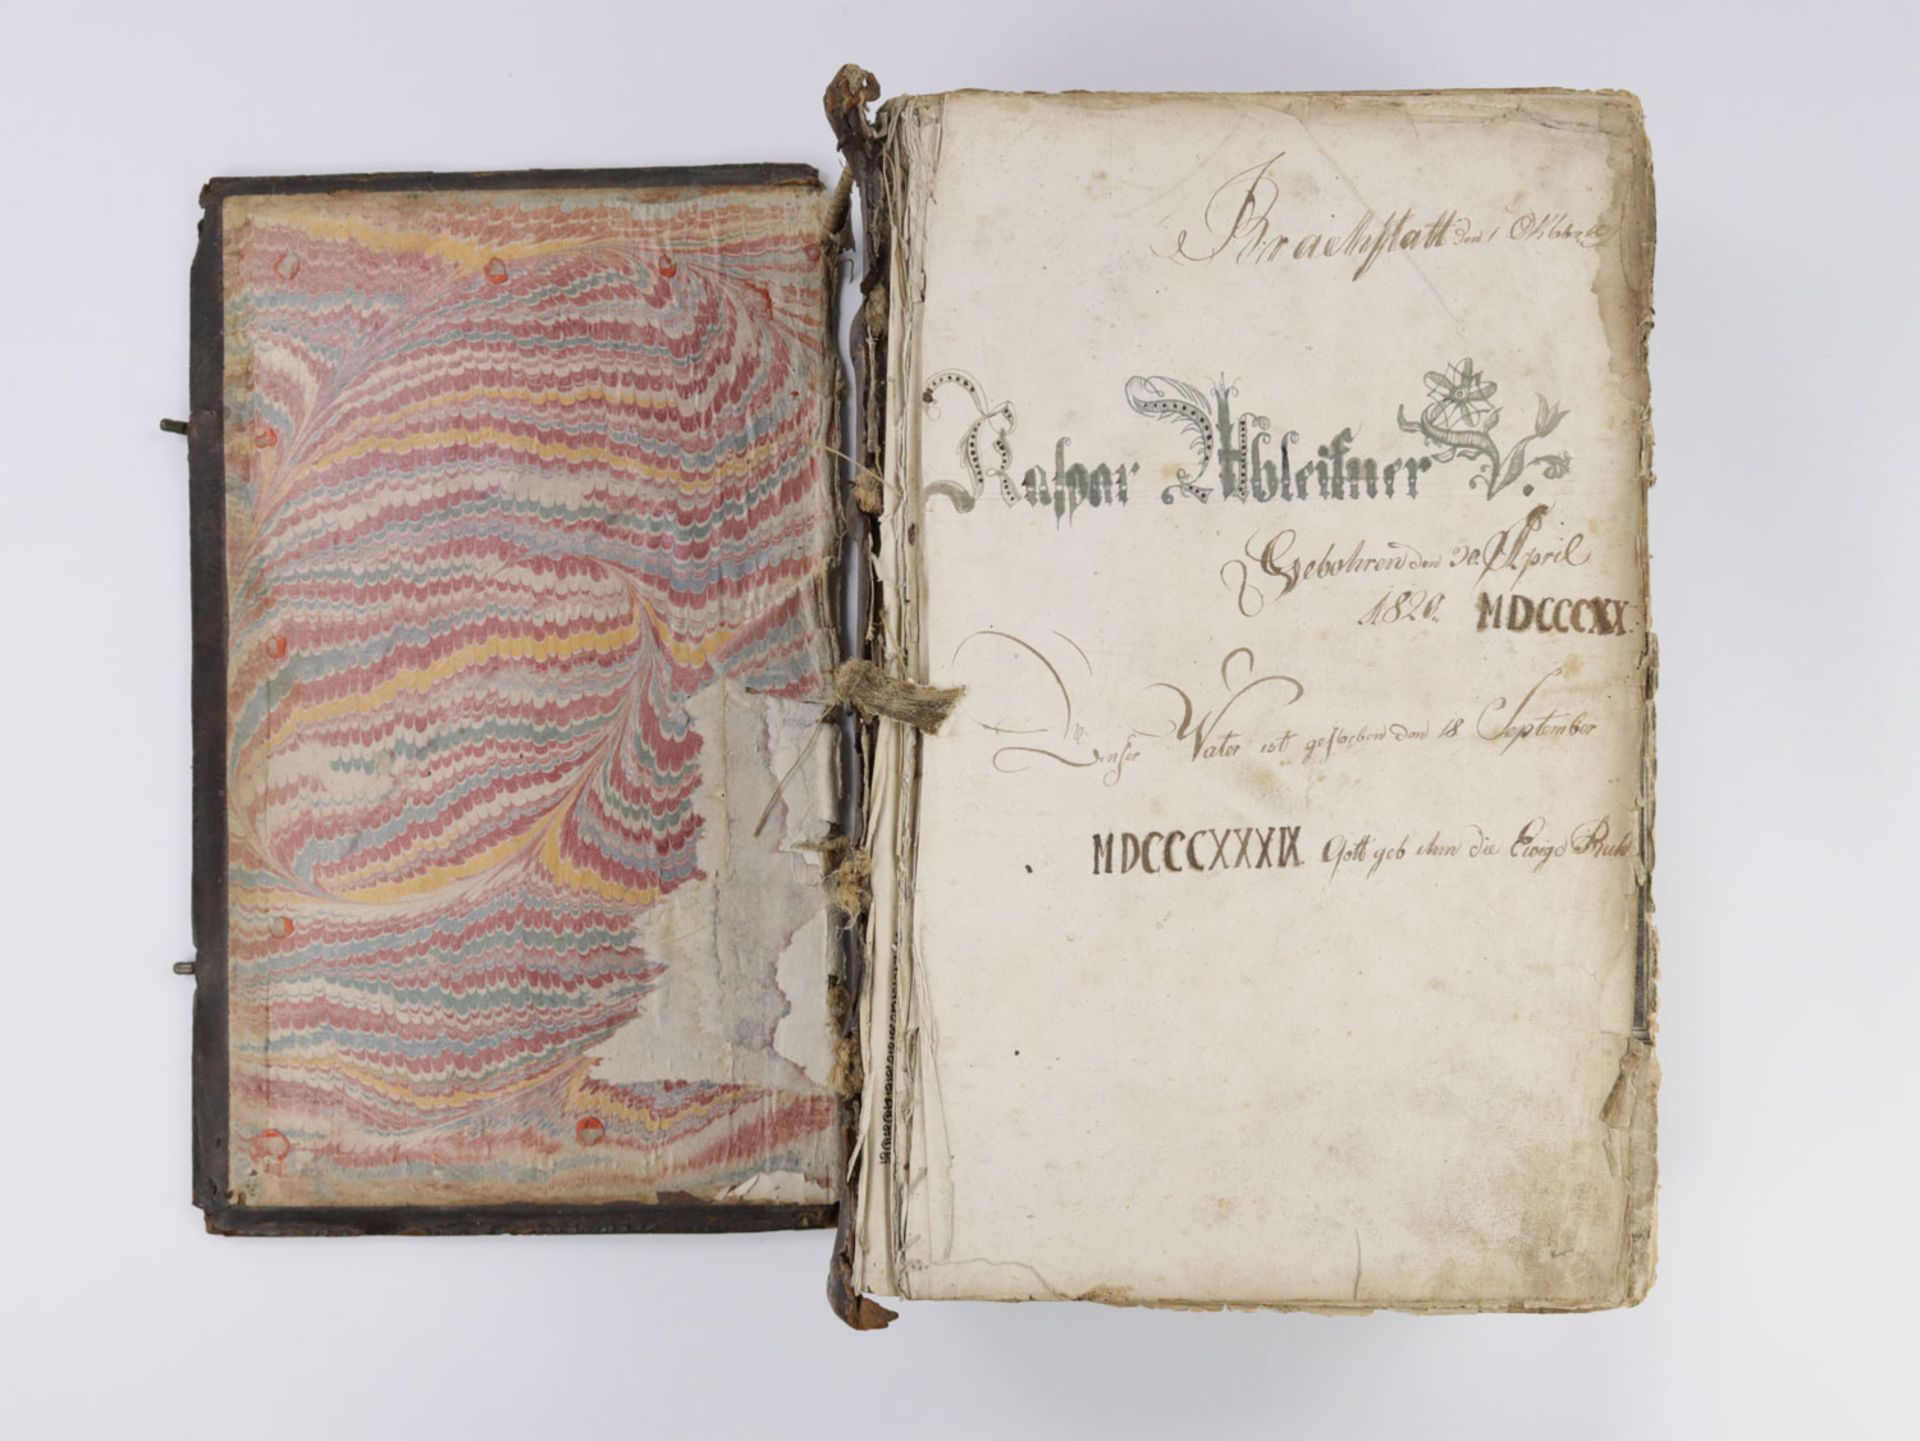 Brachstatt den 1 Oktober
Kaspar Ableitner
Gebohren den 20. April
1820. MDCCCXX.
Unser Vater ist gestorben den 18 September
MDCCCXXXIX Gott geb ihm die Ewige Ruhe